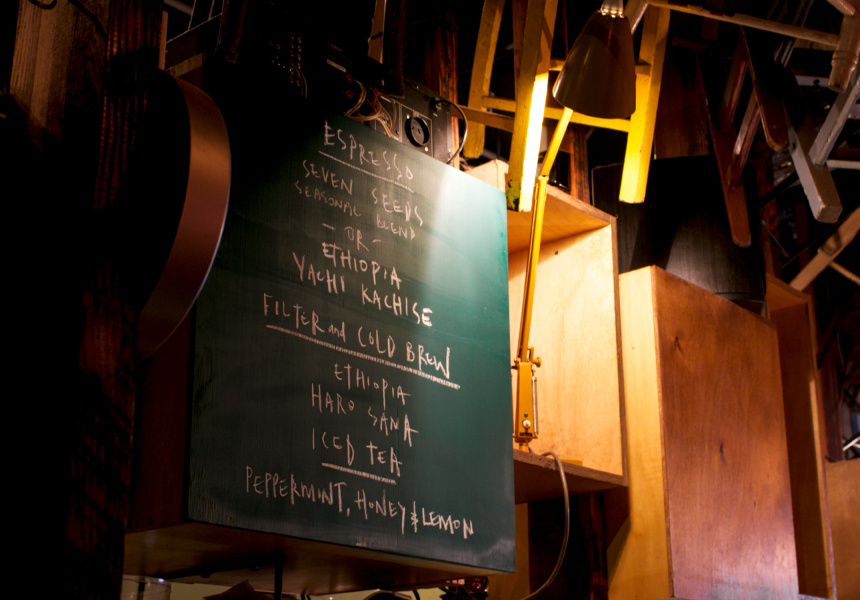 ESPRESSO
SEVEN SEEDS
SEASONAL BLEND
- OR -
ETHIOPIA
YACHI KACHISE
FILTER and COLD BREW
ETHIOPIA
HARO SANA
ICED TEA
PEPPERMINT, HONEY & LEMON